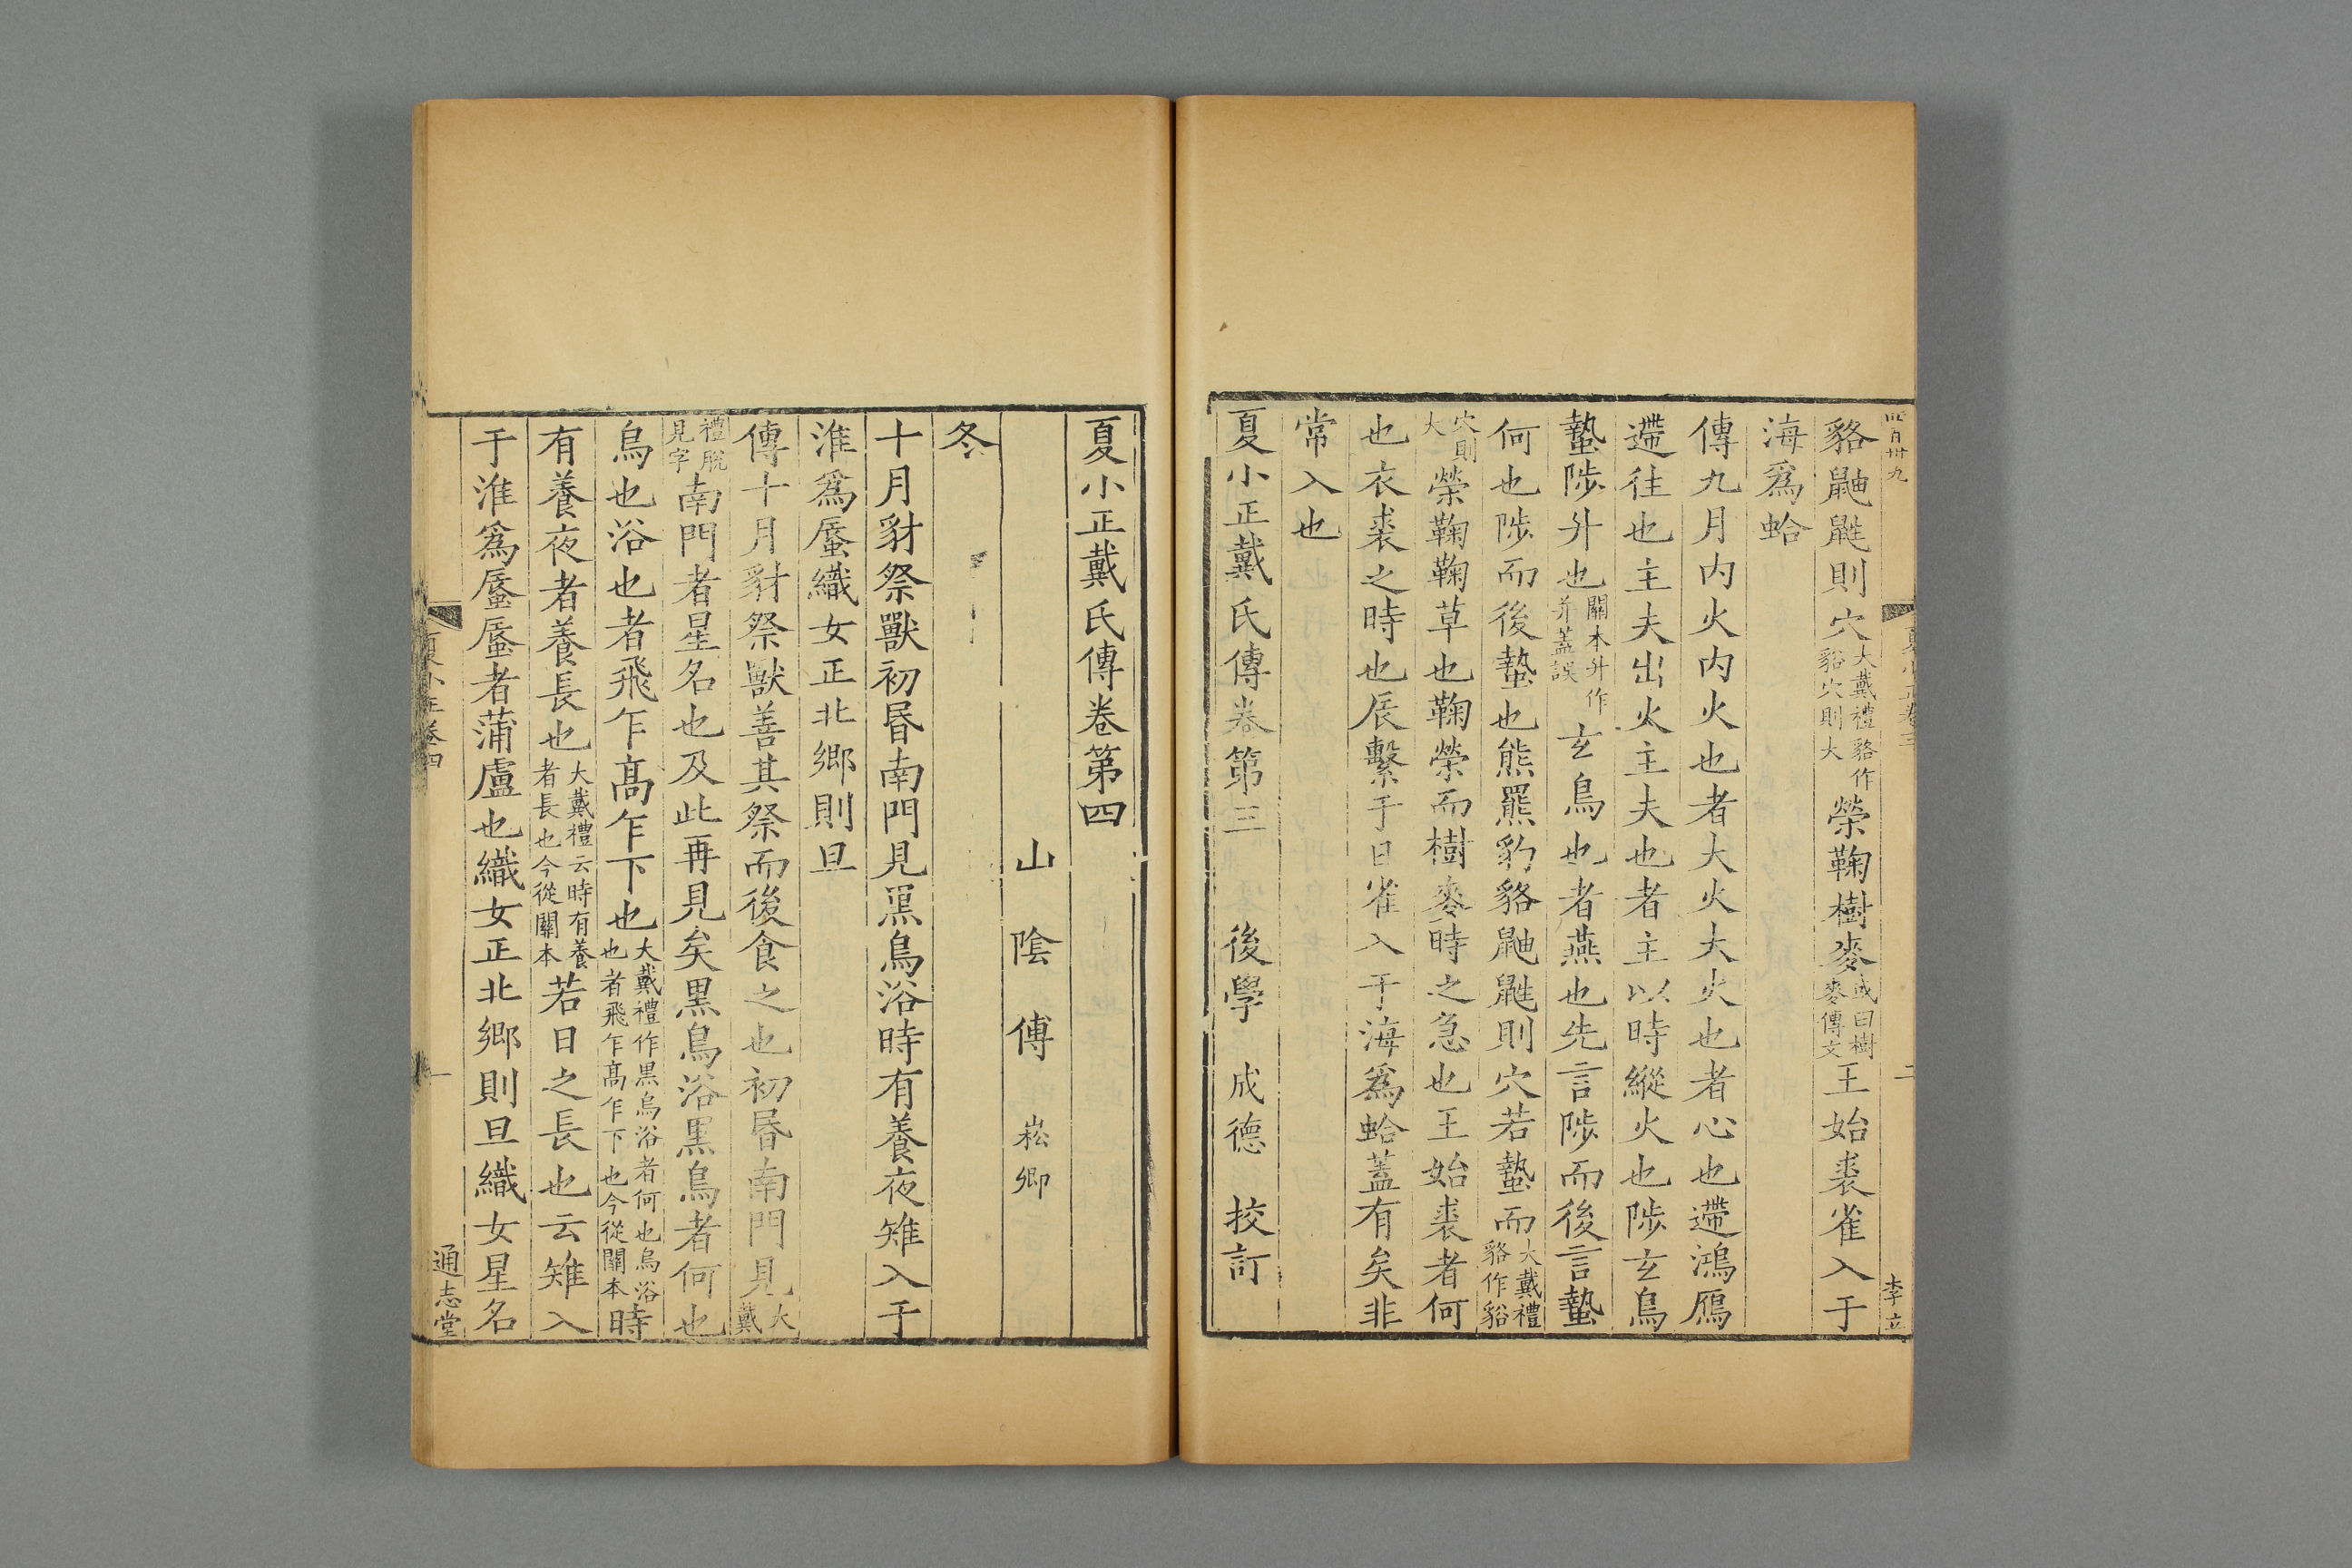 貉鼬鼪則穴大戴禮貉作貉穴則大榮鞠樹麥或曰樹麥傳文王始裘雀入于
海爲蛤
傳九月内火内火也者大火大火也者心也遰鴻鴈
遰往也主夫出火主夫也者主以時縱火也陟玄鳥
蟄陟升也關本升作并蓋誤玄鳥也者燕也先言陟而後言蟄
何也陟而後蟄也熊羆豹貉鼬鼪則穴若蟄而大戴禮貉作貉
穴則大榮鞠鞠草也鞠榮而樹麥時之急也王始裘者何
也衣裘之時也辰繫于日雀入于海爲蛤蓋有矣非
常入也
夏小正戴氏傳卷第三 後學 成德 挍訂
李立
夏小正戴氏傳卷第四
山陰傅崧卿
冬
十月豺祭獸初昬南門見黑鳥浴時有養夜雉入于
淮爲蜃織女正北鄉則旦
傳十月豺祭獸善其祭而後食之也初昬南門見大戴
禮脫見字南門者星名也及此再見矣黑鳥浴黑鳥者何也
烏也浴也者飛乍髙乍下也大戴禮作黑烏浴者何也烏浴也者飛乍髙乍下也今從關本時
有養夜者養長也大戴禮云時有養者長也今從關本若日之長也云雉入
于淮爲蜃蜃者蒲盧也織女正北鄉則旦織女星名
夏小正卷四
一
通志堂